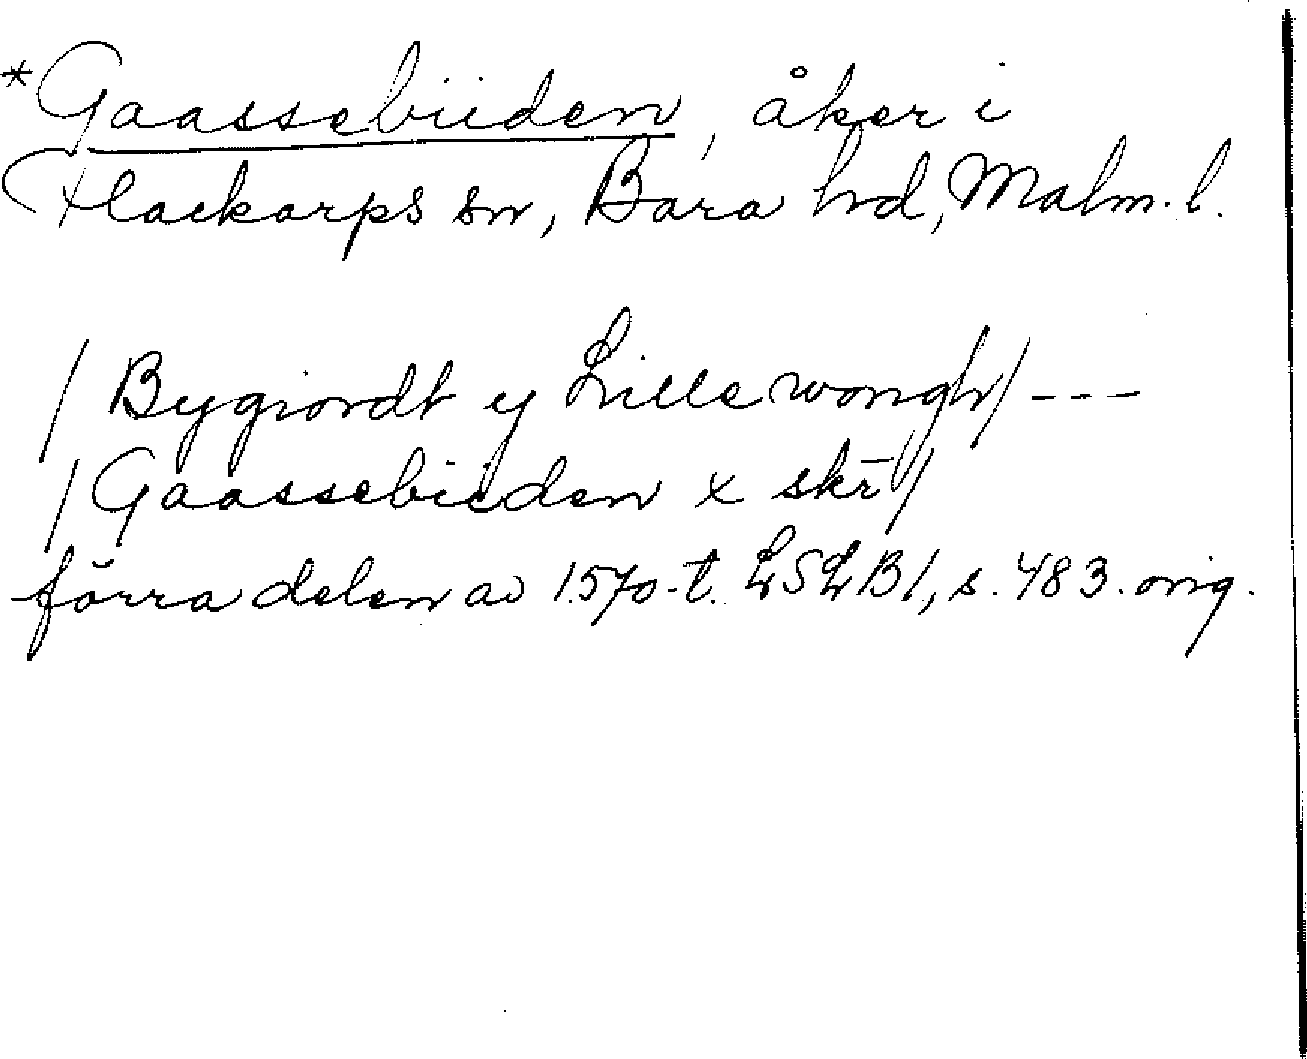 *Gaassebiiden, åker i
Flackarps sn, Bara hd, Malm. l.
/ Bygiordt y Lille wongh / ---
/ Gaassebiiden x skr̄ /
förra delen av 1570-t. LSLB1, s. 483. orig.